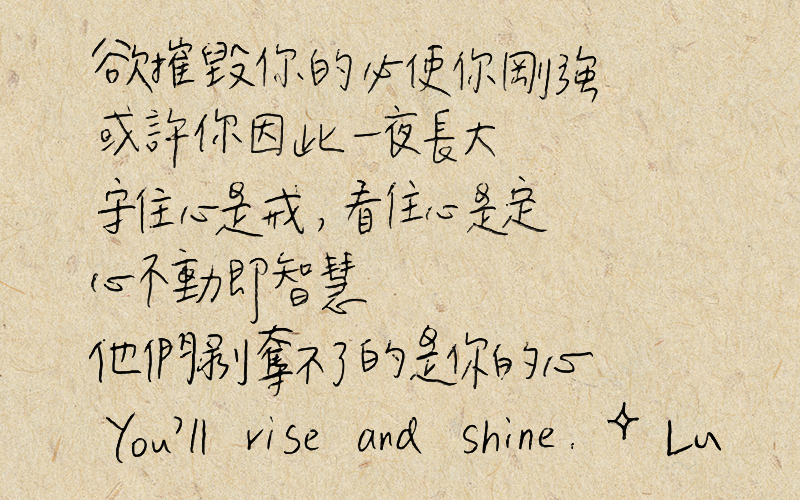 欲摧毀你的必使你剛強
或許你因此一夜長大
守住心是戒，看住心是定
心不動即智慧
他們剝奪不了的是你的心
You'll rise and shine. Lu